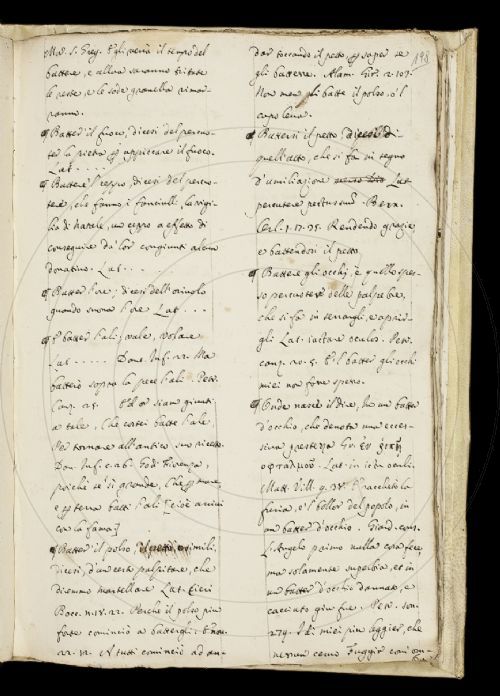 Mor. S. Greg. Egli verrà il tempo del
battere, e allora saranno tritate
le reste, e le sode granella rimar-
ranno.
¶ Batter il fuoco, dicesi del percuo-
ter la pietra per appiccare il fuoco.
Lat. . . . .
¶ Battere il ceppo, dicesi del percuo-
tere, che fanno i fanciulli la vigi-
lia di Natale, un ceppo a effetto di
conseguire da' lor congiunti alcun
donativo. Lat. . . .
¶ Batter l'ore, dicesi dell'oriuolo
quando suona l'ore Lat. . . .
¶ E batter l'ali, vale, Volare
Lat. . . . . Dant. Inf. 22. Ma
batterò sopra la pece l'ali. Petr.
Canz. 28. Ed or siam giunti
a tale, Che costei batte l'ale,
Per tornare all'antico suo ricetto.
Dan. Inf. c. 26. Godi Fiorenza,
poichè se' sì grande, Che per mare,
e per terra batti l'ali [cioè arrivi
con la fama]
¶ Batter il polso, il petto, e simili,
dicesi, d'un certo palpitare, che
diremmo martellare Lat.
Bocc. n. 18. 22. Perchè il polso più
forte cominciò a battergli. E nov.
22. 12. E tutti cominciò ad an-
198
dar toccando il petto, per saper se
gli battesse. Alam. Gir. 2. 107.
Non men gli batte il polso, o'l
capo lena.
¶ Battersi il petto, dicesi di
quell'atto, che si fa in segno
d'umiliazione Lat.
percutere pectus suum. Bern.
Orl. 1. 17. 35. Rendendo grazie,
e battendosi il petto.
¶ Battere gli occhi, è quello spes-
so percuotere delle palpebre,
che si fa in serrargli, e aprir-
gli Lat. iactare oculos. Petr.
canz. 20. 5. E'l batter gli occhi
miei non fosse spesso.
¶ Onde nasce il dire, In un batter
d'occhio, che denota una ecces-
siva prestezza Gr. ἐν ῥιπῇ
ὀφταλμοῦ. Lat. in ictu oculi.
Matt. Vill. 9. 38. E racchetò la
furia, e'l bollor del popolo, in
un batter d'occhio. Giord.
L'Angelo primo nulla cosa fece
ma solamente superbia, et in
un batter d'occhio dannato, e
cacciato giù fue. Petr. son.
279. I dì miei più leggier, che
nessun cervo Fuggir com'om-